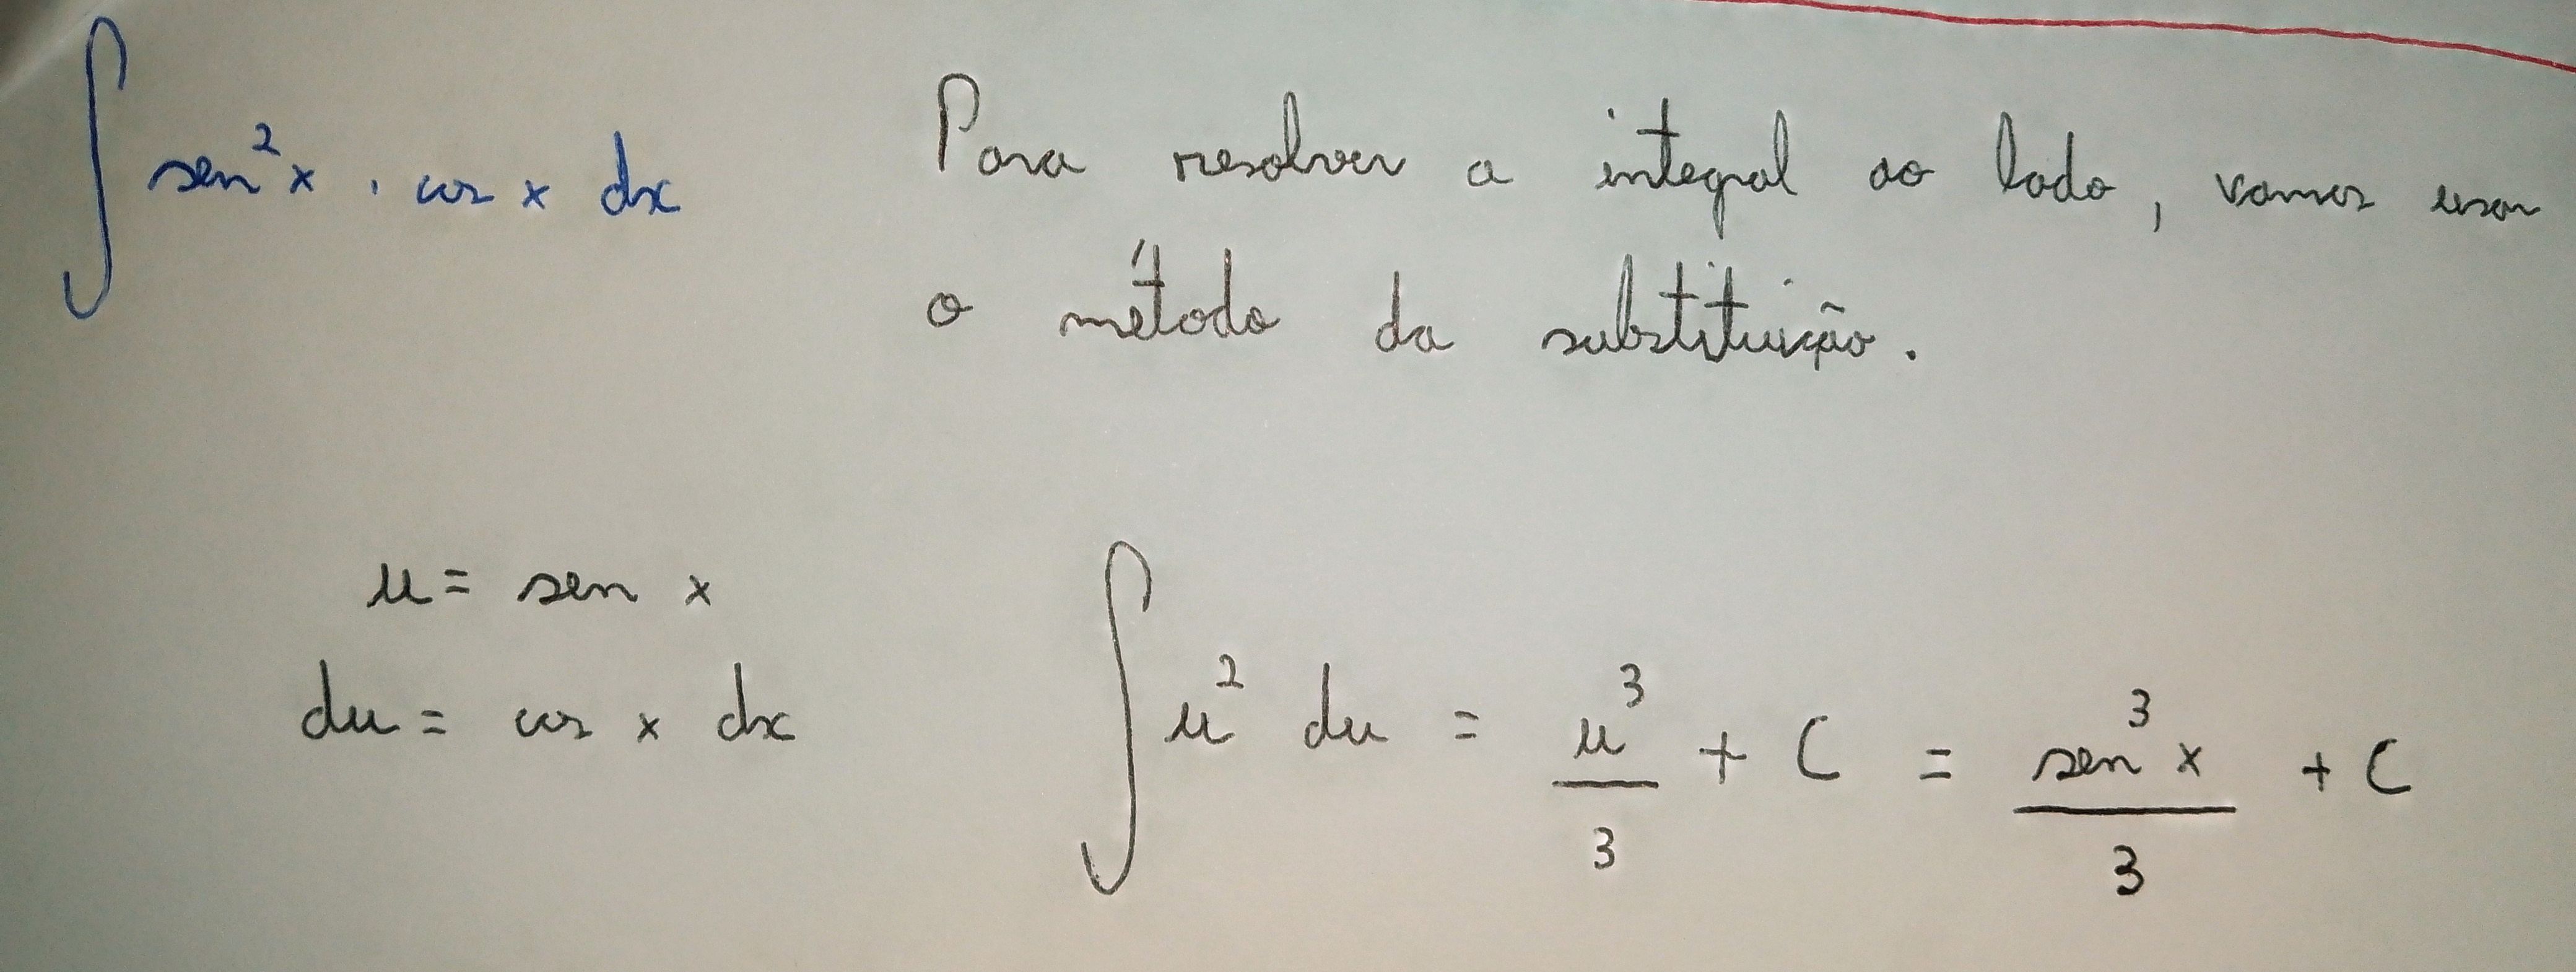 ∫ sen²x · cos x dx
Para resolver a integral ao lado, vamos usar
o método da substituição.
u = sen x
du = cos x dx
∫ u² du = u³/3 + C = sen³x/3 + C